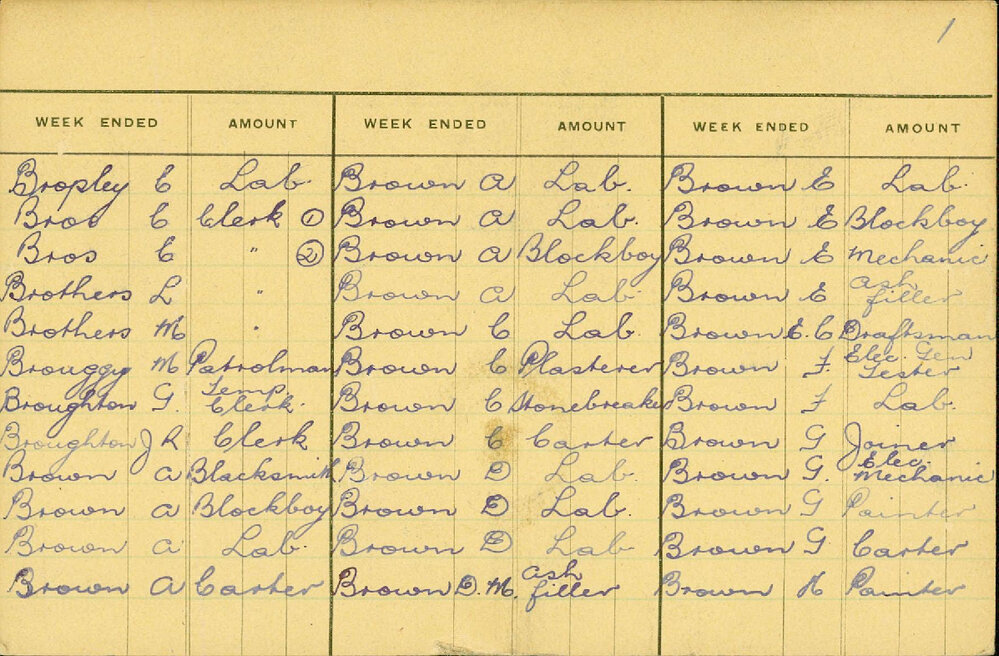 1
WEEK ENDED AMOUNT WEEK ENDED AMOUNT WEEK ENDED AMOUNT
Bropley E Lab. Brown A Lab. Brown E Lab
Bros E Clerk ① Brown A Lab. Brown E Blockboy
Bros E " ② Brown A Blockboy Brown E Mechanic
Brothers L " Brown A Lab Brown E Ash filler
Brothers M " Brown C Lab. Brown E. C Draftsman
Brouggy M Patrolman Brown C Plasterer Brown F Elec. Tem Tester
Broughton G. Temp Clerk. Brown C Stonebreaker Brown F Lab.
Broughton J R Clerk Brown C Carter Brown G Joiner
Brown A Blacksmith Brown D Lab. Brown G. Elec. Mechanic
Brown A Blockboy Brown D Lab. Brown G Painter
Brown A Lab. Brown D Lab Brown G Carter
Brown A Carter Brown D. M. Ash filler Brown H Painter